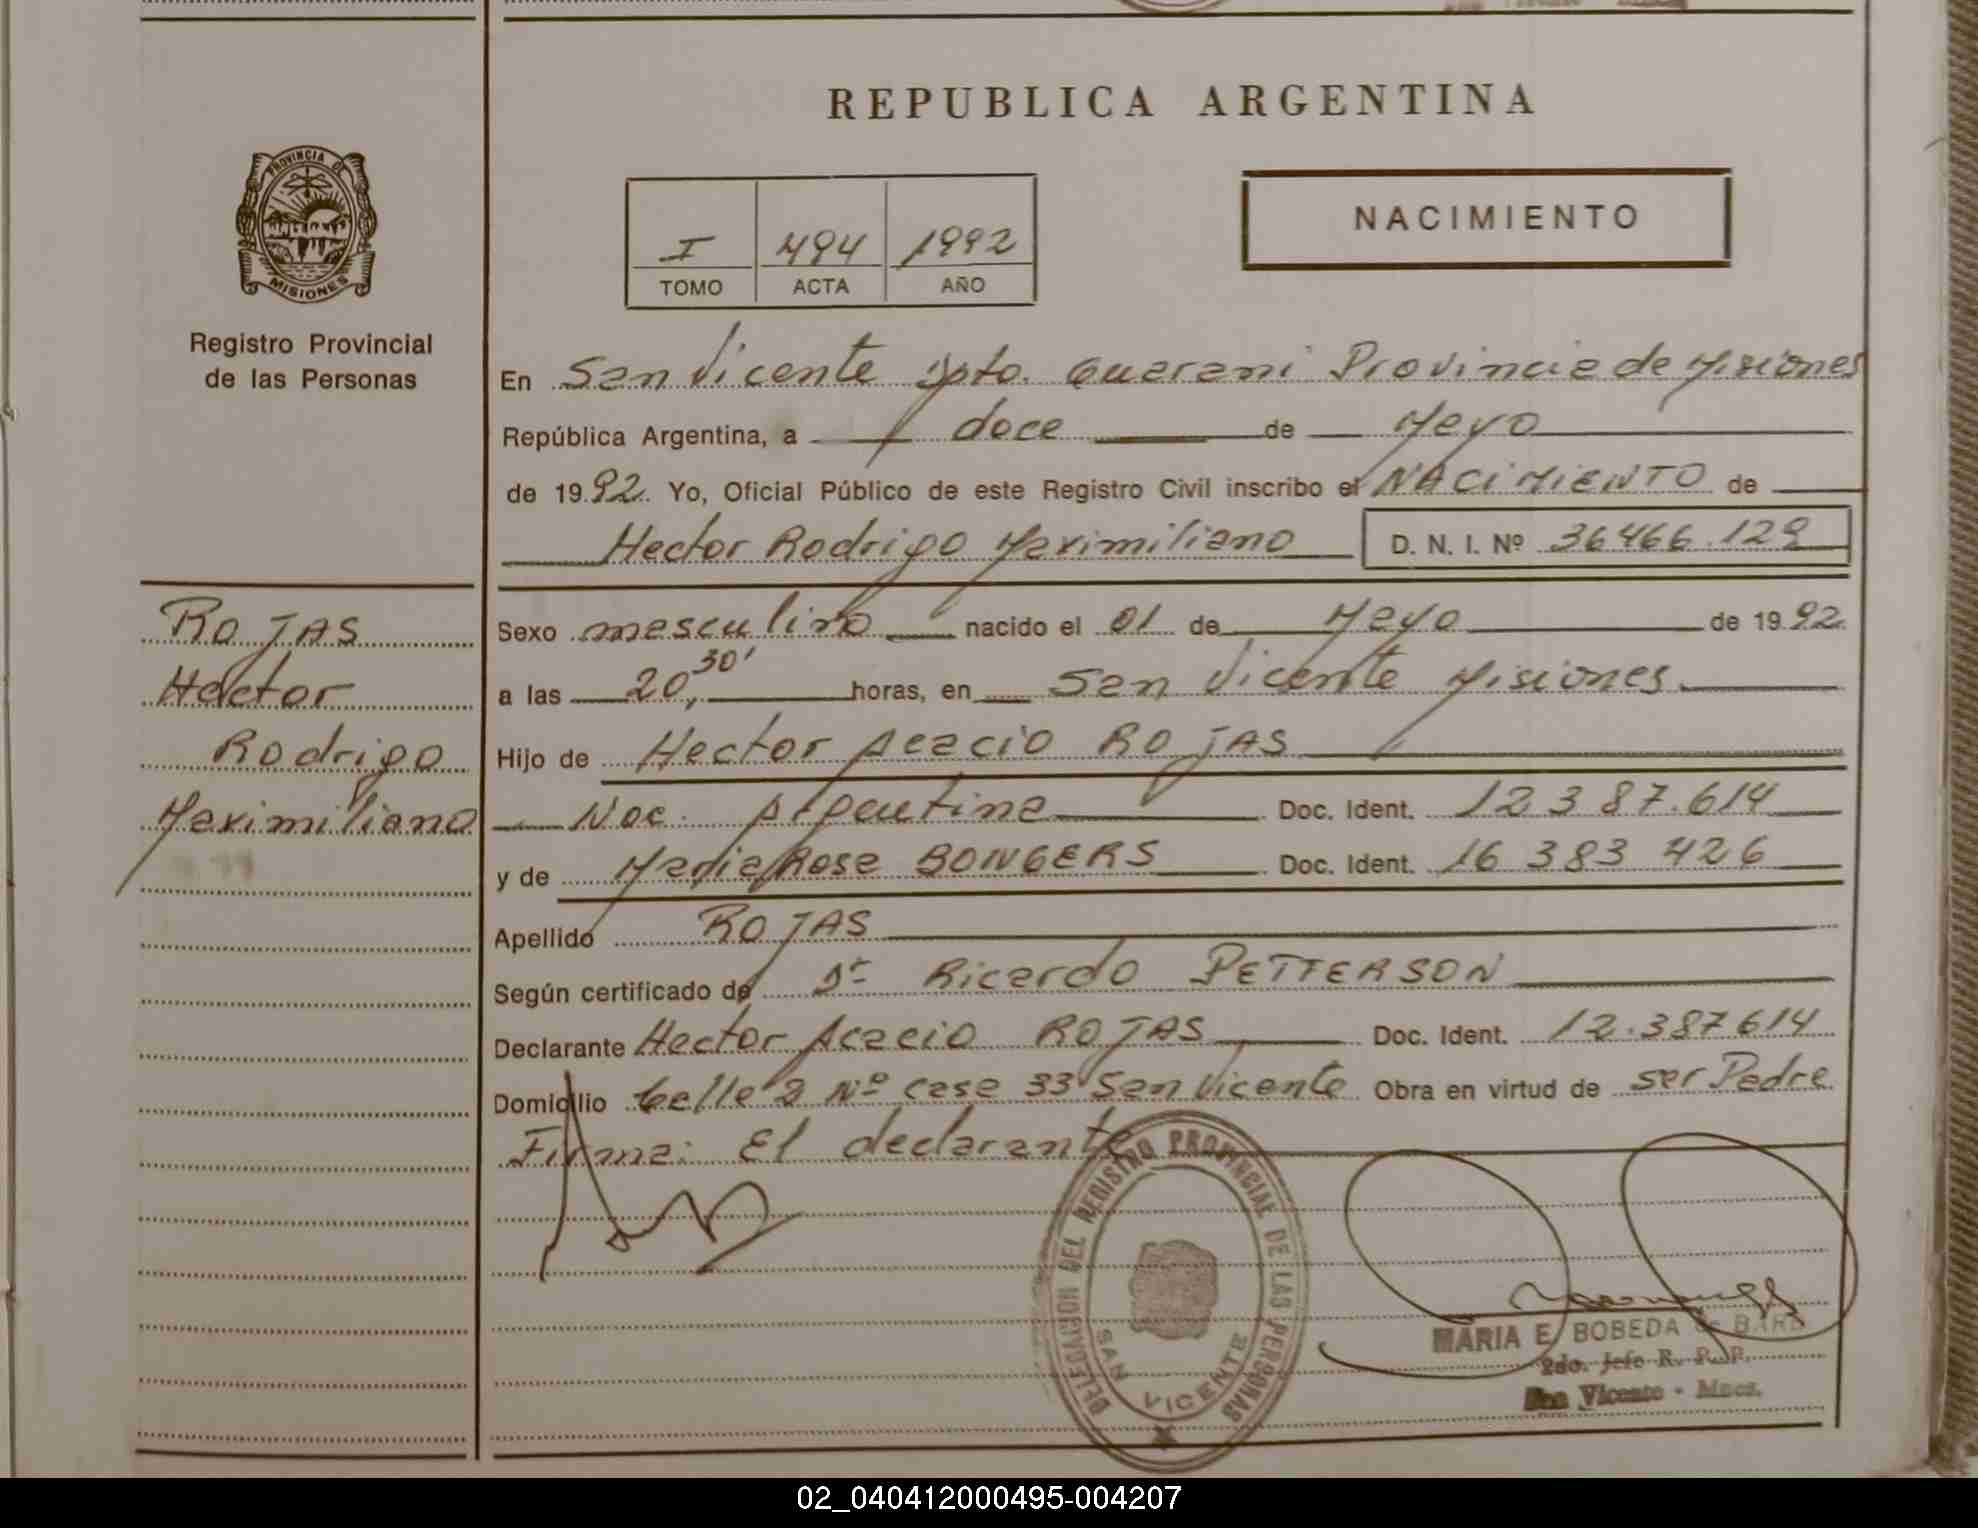 REPUBLICA ARGENTINA
PROVINCIA DE
MISIONES
Registro Provincial
de las Personas
I 494 1992
TOMO ACTA AÑO
NACIMIENTO
En San Vicente Dpto. Guarani Provincia de Misiones
República Argentina, a doce de Mayo
de 1992. Yo, Oficial Público de este Registro Civil inscribo el NACIMIENTO de
Hector Rodrigo Maximiliano D. N. I. Nº 36466.129
ROJAS
Hector
Rodrigo
Maximiliano
Sexo masculino nacido el 01 de Mayo de 1992.
a las 20,30' horas, en San Vicente Misiones.
Hijo de Hector Acacio ROJAS
Nac. Argentina Doc. Ident. 12387.614
y de Maria Rosa BONGERS Doc. Ident. 16 383 426
Apellido ROJAS
Según certificado de Dr Ricardo PETTERSON
Declarante Hector Acacio ROJAS Doc. Ident. 12.387614
Domicilio Calle 2 Nº Casa 33 San Vicente Obra en virtud de ser Padre
Firma: El declarante
DELEGACION DEL REGISTRO PROVINCIAL DE LAS PERSONAS
SAN VICENTE
MARIA E. BOBEDA de
2do. Jefe R. P. P.
San Vicente - Mnes.
02_040412000495-004207